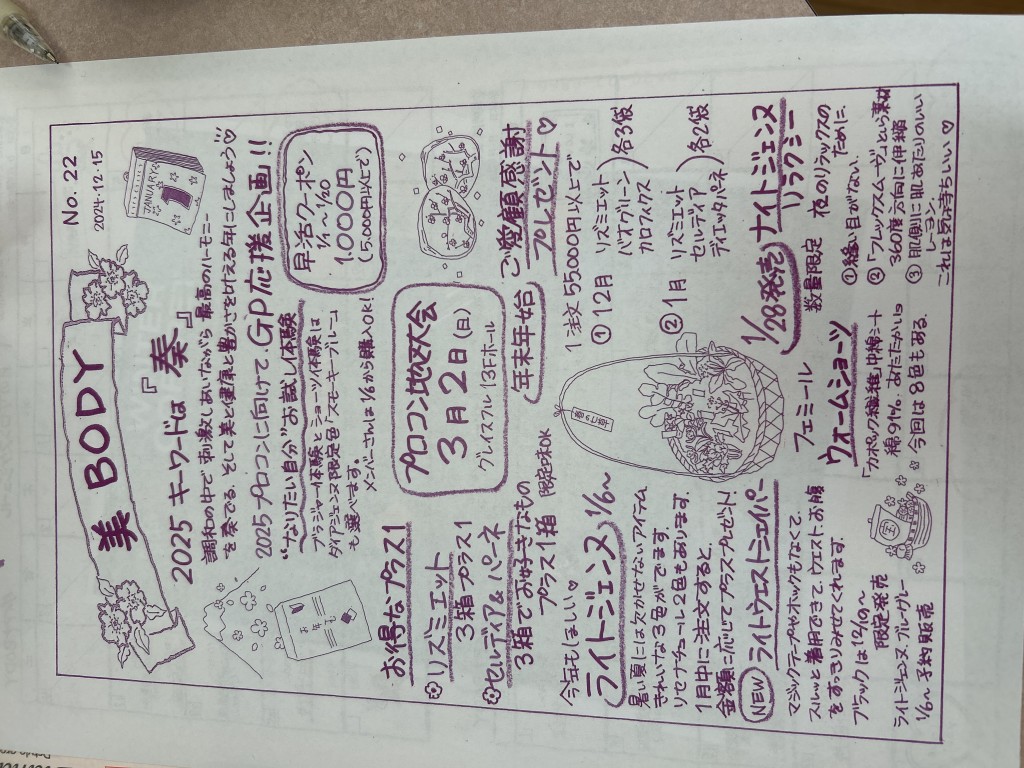 No. 22
2024.12.15
美 BODY
2025 キーワードは『奏』
調和の中で刺激しあいながら 最高のハーモニー
を奏でる。そして美と健康と豊かさを叶える年にしましょう♡
JANUARY
1
お年玉
2025プロコンに向けて、GP応援企画!!
"なりたい自分"お試し体験
ブラジャー体験とショーツ体験は
ダイアジェンヌ限定色「スモーキーブルー」
も選べます。
メンバーさんは1/6から購入OK!
早活クーポン
1/4～1/20
1,000円
(5,000円以上で)
お得なプラス1
リズミエット
3箱プラス1
セルディア&パーネ
3箱でお好きなもの
プラス1箱 限定味OK
プロコン地区大会
3月2日(日)
グレイスフル 13Fホール
年末年始 ご愛顧感謝
プレゼント♡
1注文 55,000円以上で
① 12月 リズミエット
バイオグリーン
カロフィクス
各3袋
② 1月 リズミエット
セルディア
ディエッタパネ
各2袋
今年もほしい♡
ライトジェンヌ 1/6～
暑い夏には欠かせないアイテム
きれいな3色がでてます。
リセラテラール2色もあります。
1月中に注文すると、
金額に応じてプラスプレゼント!
NEW ライトウエストニッパー
マジックテープやホックもなくて、
スルッと着用できて、ウエスト、お腹
をすっきりみせてくれます。
ブラックは12/10～
限定発売
ライトジェンヌ ブルーグレー
1/6～予約販売
宝
フェミール
ウォームショーツ
「カポック繊維」中綿シート
綿91%。あたたかい。
今回は8色もある。
1/28発売 ナイトジェンヌ
リラクシー
数量限定 夜のリラックスの
ために。
① 縫い目がない。
② 「フレックスムーヴ」という素材
360度 六方向に伸縮
③ 肌側に肌あたりのいい
レーヨン。
これは気持ちいい♡